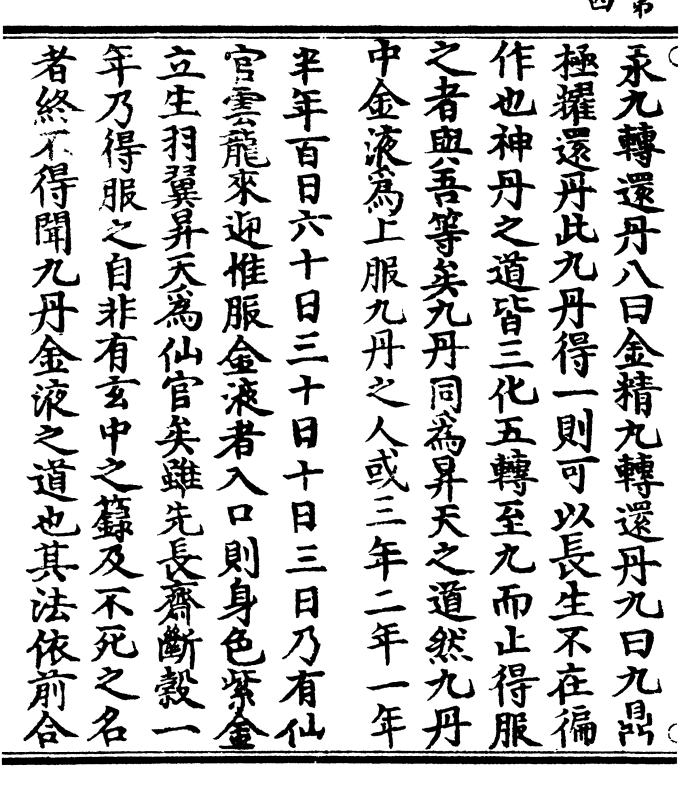 第四
汞九轉還丹八曰金精九轉還丹九曰九鼎
極擢還丹此九丹得一則可以長生不在徧
作也神丹之道皆三化五轉至九而止得服
之者與吾等矣九丹同為昇天之道然九丹
中金液為上服九丹之人或三年二年一年
半年百日六十日三十日十日三日乃有仙
官雲龍來迎惟服金液者入口則身色紫金
立生羽翼昇天為仙官矣雖先長齋斷穀一
年乃得服之自非有玄中之籙及不死之名
者終不得聞九丹金液之道也其法依前合